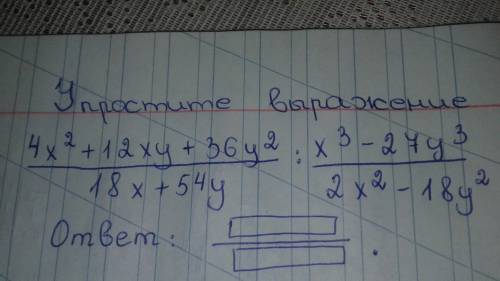 Упростите выражение
4x² + 12xy + 36y² / 18x + 54y : x³ - 27y³ / 2x² - 18y²
Ответ: